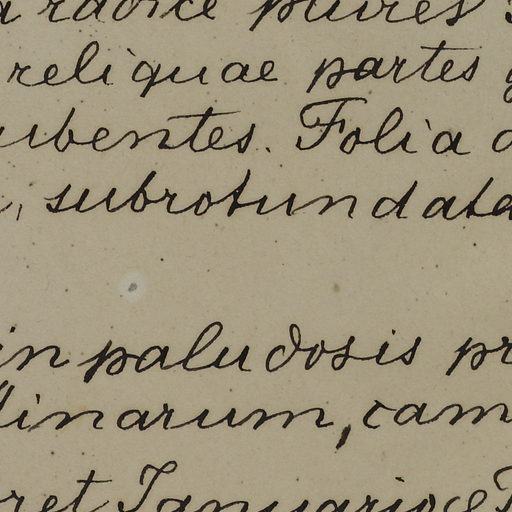 radice plures
reliquae partes
ubentes. Folia
, subrotundata
in paludosis pr
linarum, cam
ret Januario &